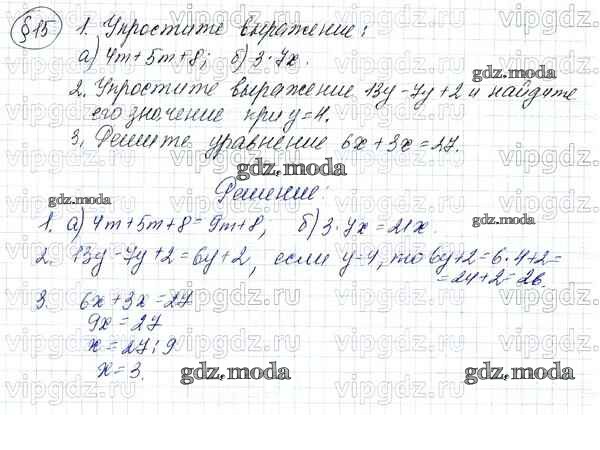 §15 1. Упростите выражение:
а) 4m+5m+8; б) 3·7x.
2. Упростите выражение 13y-7y+2 и найдите
его значение при y=4.
3. Решите уравнение 6x+3x=27.
Решение:
1. а) 4m+5m+8=9m+8; б) 3·7x=21x.
2. 13y-7y+2=6y+2, если y=4, то 6y+2=6·4+2=
=24+2=26.
3. 6x+3x=27
9x=27
x=27:9
x=3.
gdz.moda
gdz.moda
gdz.moda
gdz.moda
gdz.moda
gdz.moda
vipgdz.ru